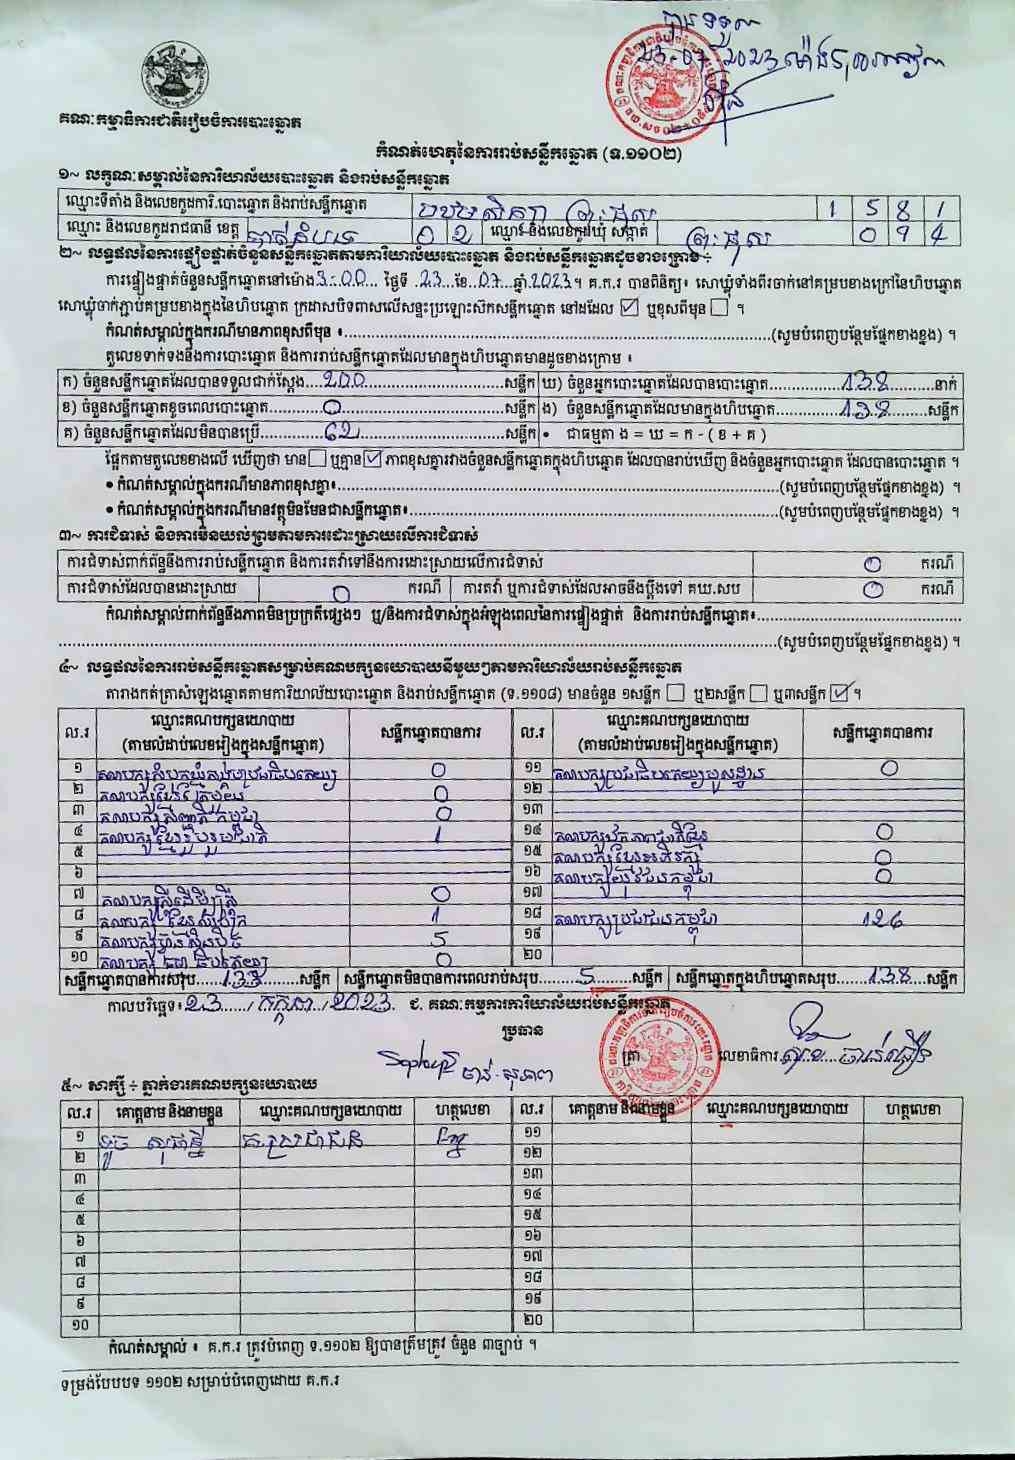 បានទទួល
23-07-2023 ម៉ោង
គណៈកម្មាធិការជាតិរៀបចំការបោះឆ្នោត
កំណត់ហេតុនៃការរាប់សន្លឹកឆ្នោត (ទ.១១០២)
១~ លក្ខណៈសម្គាល់នៃការិយាល័យបោះឆ្នោត និងរាប់សន្លឹកឆ្នោត
ឈ្មោះទីតាំង និងលេខកូដការិ.បោះឆ្នោត និងរាប់សន្លឹកឆ្នោត បឋមសិក្សា ព្រះផុស 1 5 8 1
ឈ្មោះ និងលេខកូដរាជធានី ខេត្ត បាត់ដំបង 0 2 ឈ្មោះ និងលេខកូដឃុំ សង្កាត់ ព្រះផុស 0 9 4
២~ លទ្ធផលនៃការផ្ទៀងផ្ទាត់ចំនួនសន្លឹកឆ្នោតតាមការិយាល័យបោះឆ្នោត និងរាប់សន្លឹកឆ្នោតដូចខាងក្រោម ÷
ការផ្ទៀងផ្ទាត់ចំនួនសន្លឹកឆ្នោតនៅម៉ោង 3:00 ថ្ងៃទី 23 ខែ 07 ឆ្នាំ 2023 ។ គ.ក.រ បានពិនិត្យ៖ សោឃ្លុំទាំងពីរចាក់នៅគម្របខាងក្រៅនៃហិបឆ្នោត
សោឃ្លុំចាក់ភ្ជាប់គម្របខាងក្នុងនៃហិបឆ្នោត ក្រដាសបិទពាសលើសន្ទះប្រឡោះស៊កសន្លឹកឆ្នោត នៅដដែល ☑ ឬខុសពីមុន ☐ ។
កំណត់សម្គាល់ក្នុងករណីមានភាពខុសពីមុន ៖ (សូមបំពេញបន្ថែមផ្នែកខាងខ្នង) ។
តួលេខទាក់ទងនឹងការបោះឆ្នោត និងការរាប់សន្លឹកឆ្នោតដែលមានក្នុងហិបឆ្នោតមានដូចខាងក្រោម ៖
ក) ចំនួនសន្លឹកឆ្នោតដែលបានទទួលជាក់ស្តែង 200 សន្លឹក ឃ) ចំនួនអ្នកបោះឆ្នោតដែលបានបោះឆ្នោត 138 នាក់
ខ) ចំនួនសន្លឹកឆ្នោតខូចពេលបោះឆ្នោត 0 សន្លឹក ង) ចំនួនសន្លឹកឆ្នោតដែលមានក្នុងហិបឆ្នោត 138 សន្លឹក
គ) ចំនួនសន្លឹកឆ្នោតដែលមិនបានប្រើ 62 សន្លឹក • ជាធម្មតា ង = ឃ = ក - ( ខ + គ )
ផ្អែកតាមតួលេខខាងលើ ឃើញថា មាន ☐ ឬគ្មាន ☑ ភាពខុសគ្នារវាងចំនួនសន្លឹកឆ្នោតក្នុងហិបឆ្នោត ដែលបានរាប់ឃើញ និងចំនួនអ្នកបោះឆ្នោត ដែលបានបោះឆ្នោត ។
• កំណត់សម្គាល់ក្នុងករណីមានភាពខុសគ្នា៖ (សូមបំពេញបន្ថែមផ្នែកខាងខ្នង) ។
• កំណត់សម្គាល់ក្នុងករណីមានវត្ថុមិនមែនជាសន្លឹកឆ្នោត៖ (សូមបំពេញបន្ថែមផ្នែកខាងខ្នង) ។
៣~ ការជំទាស់ និងការមិនយល់ព្រមតាមការដោះស្រាយលើការជំទាស់
ការជំទាស់ពាក់ព័ន្ធនឹងការរាប់សន្លឹកឆ្នោត និងការតវ៉ាទៅនឹងការដោះស្រាយលើការជំទាស់ 0 ករណី
ការជំទាស់ដែលបានដោះស្រាយ 0 ករណី ការតវ៉ា ឬការជំទាស់ដែលអាចនឹងប្តឹងទៅ គឃ.សប 0 ករណី
កំណត់សម្គាល់ពាក់ព័ន្ធនឹងភាពមិនប្រក្រតីផ្សេងៗ ឬ/និងការជំទាស់ក្នុងអំឡុងពេលនៃការផ្ទៀងផ្ទាត់ និងការរាប់សន្លឹកឆ្នោត៖
(សូមបំពេញបន្ថែមផ្នែកខាងខ្នង) ។
៤~ លទ្ធផលនៃការរាប់សន្លឹកឆ្នោតសម្រាប់គណបក្សនយោបាយនីមួយៗតាមការិយាល័យរាប់សន្លឹកឆ្នោត
តារាងកត់ត្រាសំឡេងឆ្នោតតាមការិយាល័យបោះឆ្នោត និងរាប់សន្លឹកឆ្នោត (ទ.១១០៨) មានចំនួន ១សន្លឹក ☐ ឬ២សន្លឹក ☐ ឬ៣សន្លឹក ☑ ។
ល.រ ឈ្មោះគណបក្សនយោបាយ (តាមលំដាប់លេខរៀងក្នុងសន្លឹកឆ្នោត) សន្លឹកឆ្នោតបានការ ល.រ ឈ្មោះគណបក្សនយោបាយ (តាមលំដាប់លេខរៀងក្នុងសន្លឹកឆ្នោត) សន្លឹកឆ្នោតបានការ
១ គណបក្សសំបុកឃ្មុំសង្គមប្រជាធិបតេយ្យ 0 ១១ គណបក្សប្រជាធិបតេយ្យមូលដ្ឋាន 0
២ គណបក្សខ្មែរក្រែមុយ 0 ១២
៣ គណបក្ស កម្ពុជា 0 ១៣
៤ គណបក្សខ្មែររួបរួមជាតិ 1 ១៤ គណបក្សឯកភាពជាតិខ្មែរ 0
៥ ១៥ គណបក្សខ្មែរអភិរក្ស 0
៦ ១៦ គណបក្សយុវជនកម្ពុជា 0
៧ គណបក្សស្រីដើម្បីស្រី 0 ១៧
៨ គណបក្សខ្មែរ 1 ១៨ គណបក្សប្រជាជនកម្ពុជា 126
៩ គណបក្សហ្វ៊ុនស៊ិនប៉ិច 5 ១៩
១០ គណបក្ស ធិបតេយ្យ 0 ២០
សន្លឹកឆ្នោតបានការសរុប 133 សន្លឹក សន្លឹកឆ្នោតមិនបានការពេលរាប់សរុប 5 សន្លឹក សន្លឹកឆ្នោតក្នុងហិបឆ្នោតសរុប 138 សន្លឹក
កាលបរិច្ឆេទ៖ 23 / កក្កដា / 2023 ជ. គណៈកម្មការការិយាល័យរាប់សន្លឹកឆ្នោត
ប្រធាន
ត្រា លេខាធិការ
ចាន់ សុភាព
៥~ សាក្សី ÷ ភ្នាក់ងារគណបក្សនយោបាយ
ល.រ គោត្តនាម និងនាមខ្លួន ឈ្មោះគណបក្សនយោបាយ ហត្ថលេខា ល.រ គោត្តនាម និងនាមខ្លួន ឈ្មោះគណបក្សនយោបាយ ហត្ថលេខា
១ ទូច សុផានី គ.ប្រជាជន ១១
២ ១២
៣ ១៣
៤ ១៤
៥ ១៥
៦ ១៦
៧ ១៧
៨ ១៨
៩ ១៩
១០ ២០
កំណត់សម្គាល់ ៖ គ.ក.រ ត្រូវបំពេញ ទ.១១០២ ឱ្យបានត្រឹមត្រូវ ចំនួន ៣ច្បាប់ ។
ទម្រង់បែបបទ ១១០២ សម្រាប់បំពេញដោយ គ.ក.រ